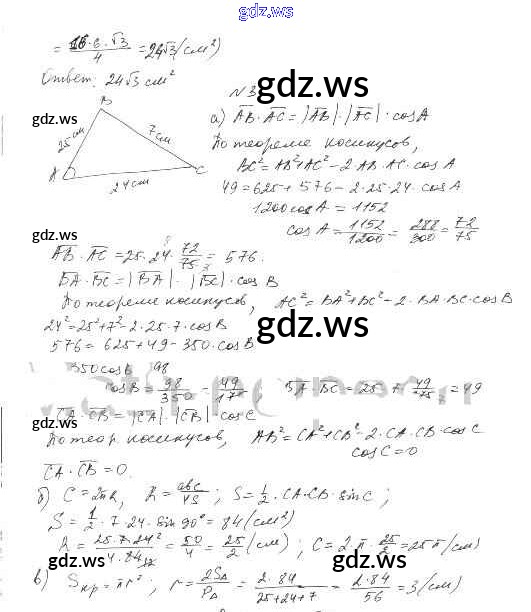 gdz.ws
= 16·6·√3 / 4 = 24√3 (см²)
Ответ: 24√3 см²
gdz.ws
N 3
B
а) AB·AC = |AB|·|AC|·cosA
gdz.ws
25см
7см
По теореме косинусов,
BC² = AB²+AC²−2·AB·AC·cosA
A
C
24см
49=625+576−2·25·24·cosA
1200cosA = 1152
cosA = 1152/1200 = 288/300 = 72/75
gdz.ws
AB·AC = 25·24·72/75 = 576.
BA·BC = |BA|·|BC|·cosB
По теореме косинусов, AC² = BA²+BC²−2·BA·BC·cosB
24²=25²+7²−2·25·7·cosB
gdz.ws
576 = 625+49−350·cosB
350cosB 98
cosB = 98/350 = 49/175; BA·BC = 25·7·49/175 = 49
CA·CB = |CA|·|CB|·cosC
gdz.ws
По теор косинусов, AB²=CA²+CB²−2·CA·CB·cosC
cosC=0
CA·CB=0.
б) C=2πR, R=abc/4S; S=1/2·CA·CB·sinC;
gdz.ws
gdz.ws
S=1/2·7·24·sin90°=84(см²)
R=25·7·24/4·84=50/4=25/2(см); C=2·π·25/2=25π(см)
в) Sкр=πr²; r=2SΔ/PΔ=2·84/25+24+7=2·84/56=3(см)
gdz.ws
gdz.ws